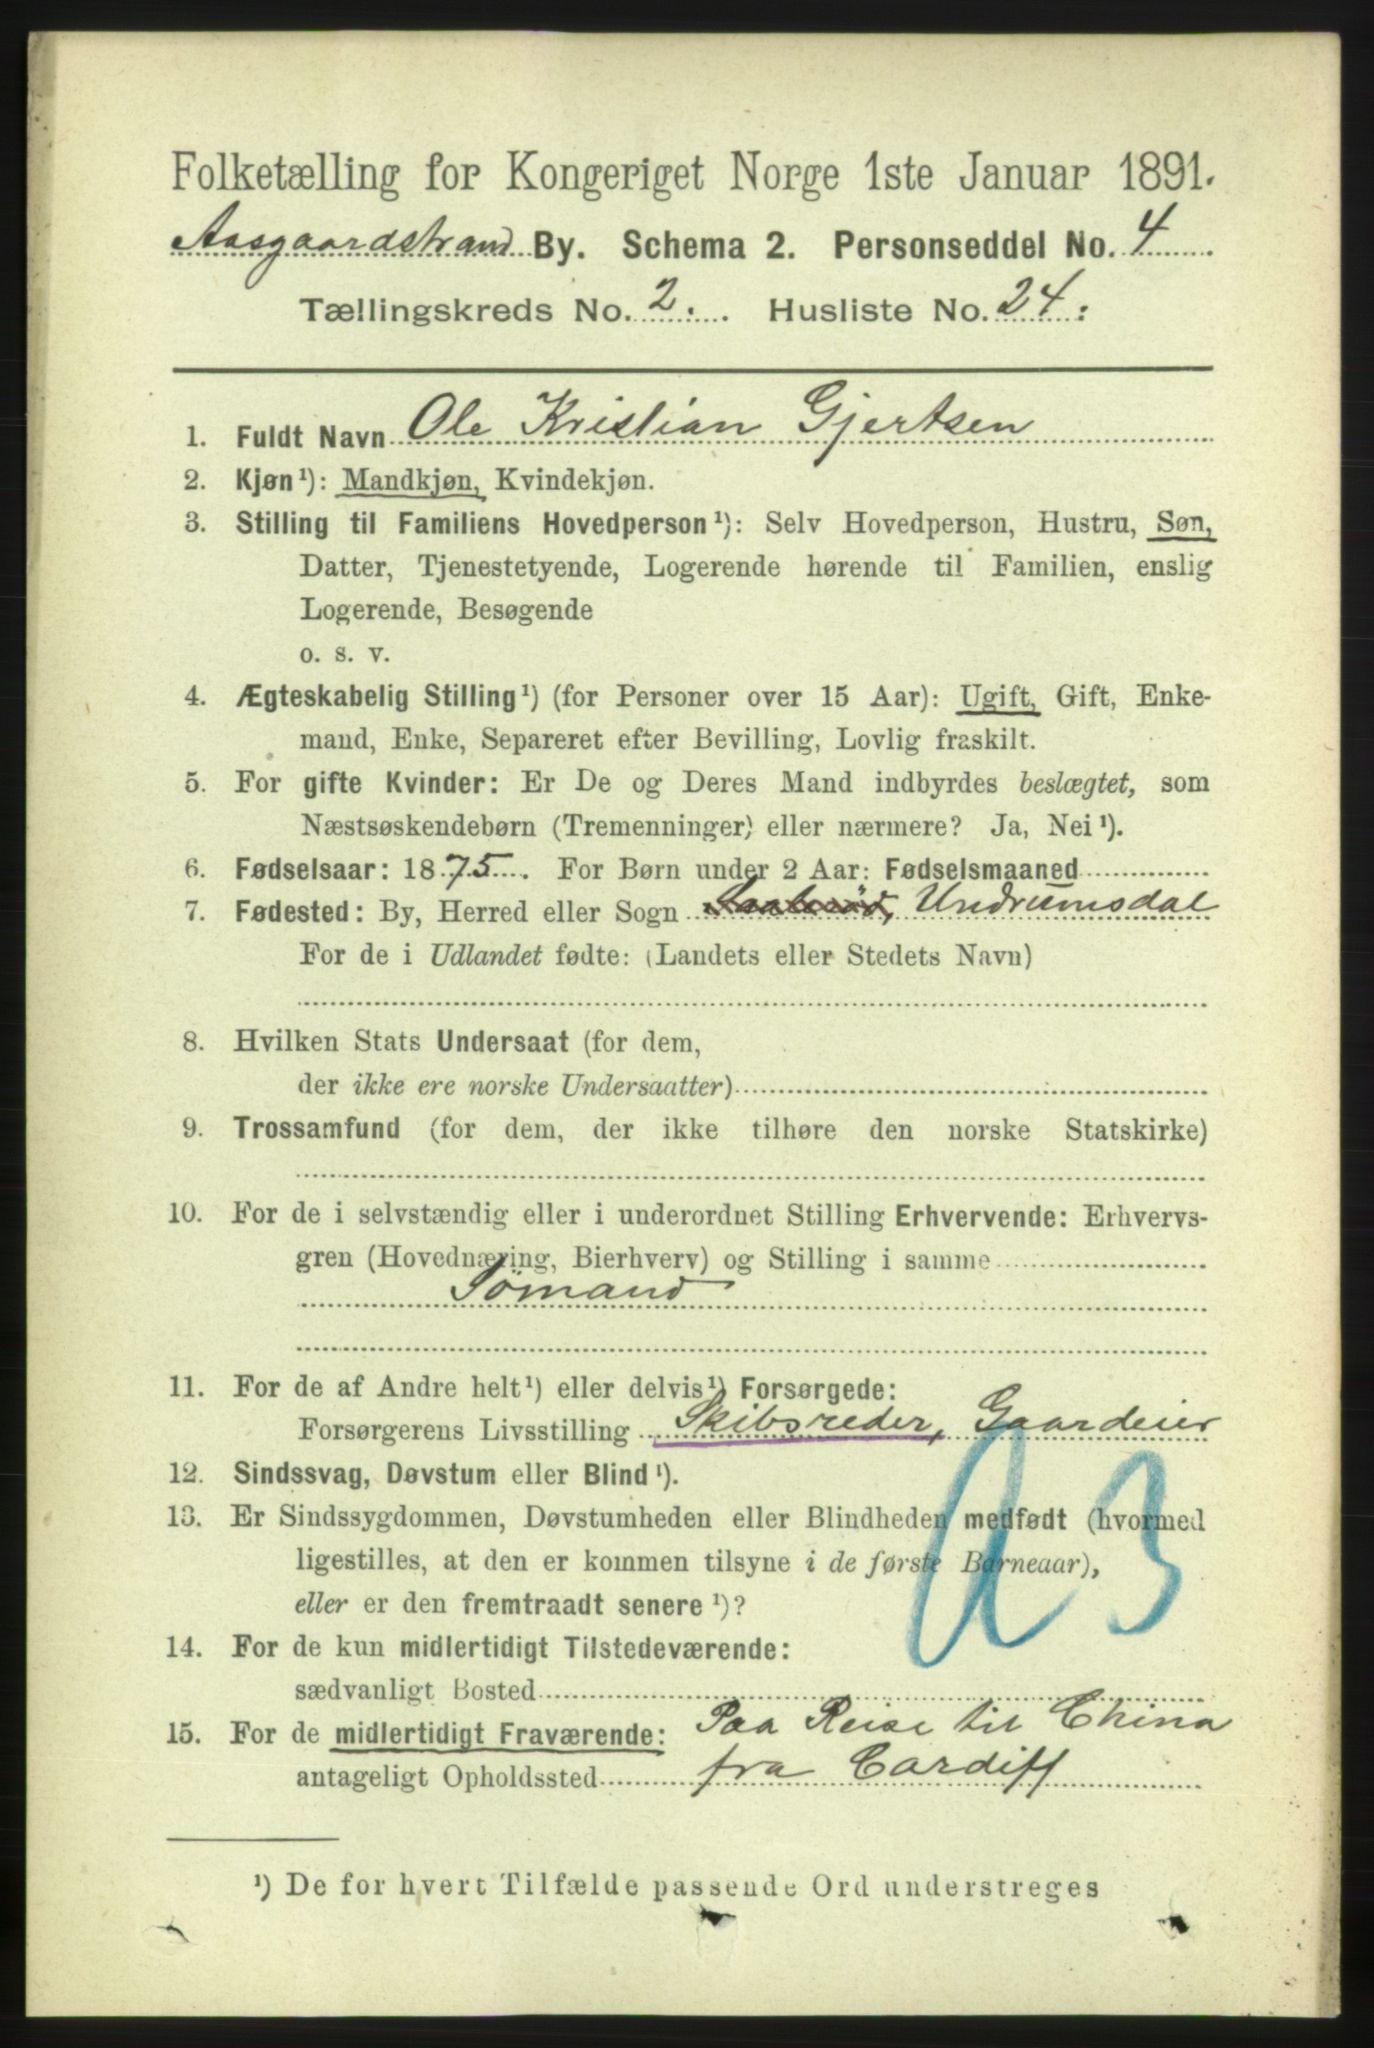 Folketælling for Kongeriget Norge 1ste Januar 1891.
Aasgaardstrand By. Schema 2. Personseddel No. 4
Tællingskreds No. 2. Husliste No. 24.
1. Fuldt Navn Ole Kristian Gjertsen
2. Kjøn¹): Mandkjøn, Kvindekjøn.
3. Stilling til Familiens Hovedperson¹): Selv Hovedperson, Hustru, Søn,
Datter, Tjenestetyende, Logerende hørende til Familien, enslig
Logerende, Besøgende
o. s. v.
4. Ægteskabelig Stilling¹) (for Personer over 15 Aar): Ugift, Gift, Enke-
mand, Enke, Separeret efter Bevilling, Lovlig fraskilt.
5. For gifte Kvinder: Er De og Deres Mand indbyrdes beslægtet, som
Næstsøskendebørn (Tremenninger) eller nærmere? Ja, Nei¹).
6. Fødselsaar: 1875. For Børn under 2 Aar: Fødselsmaaned
7. Fødested: By, Herred eller Sogn Undrumsdal
For de i Udlandet fødte: (Landets eller Stedets Navn)
8. Hvilken Stats Undersaat (for dem,
der ikke ere norske Undersaatter)
9. Trossamfund (for dem, der ikke tilhøre den norske Statskirke)
10. For de i selvstændig eller i underordnet Stilling Erhvervende: Erhvervs-
gren (Hovednæring, Bierhverv) og Stilling i samme
Sömand
11. For de af Andre helt¹) eller delvis¹) Forsørgede:
Forsørgerens Livsstilling Skibsreder, Gaardeier
12. Sindssvag, Døvstum eller Blind¹).
13. Er Sindssygdommen, Døvstumheden eller Blindheden medfødt (hvormed
ligestilles, at den er kommen tilsyne i de første Barneaar),
eller er den fremtraadt senere¹)?
14. For de kun midlertidigt Tilstedeværende:
sædvanligt Bosted
15. For de midlertidigt Fraværende: Paa Reise til China
antageligt Opholdssted fra Cardiff
¹) De for hvert Tilfælde passende Ord understreges